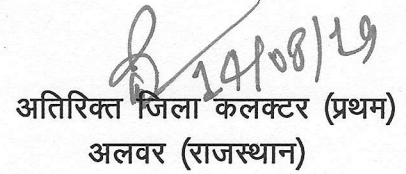 14/08/19
अतिरिक्त जिला कलक्टर (प्रथम)
अलवर (राजस्थान)